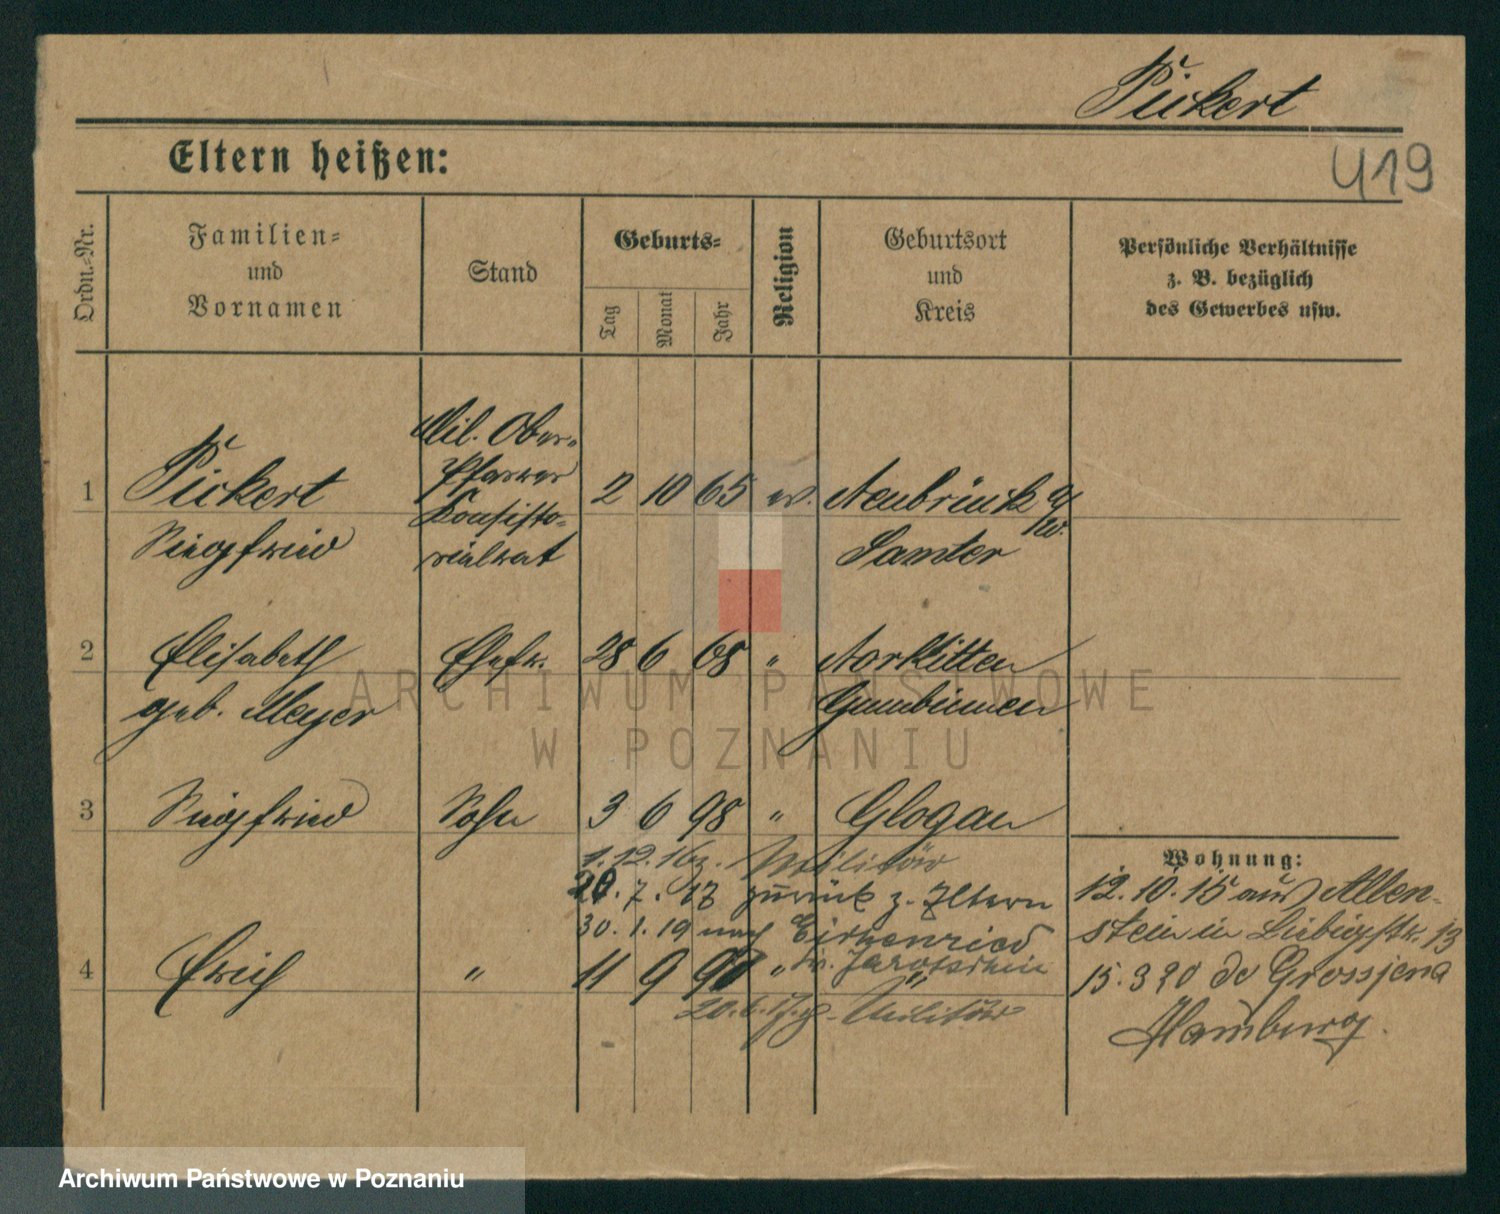 Pickert
Eltern heißen:
419
Ordn.-Nr.
Familien-
und
Vornamen
Stand
Geburts-
Tag
Monat
Jahr
Religion
Geburtsort
und
Kreis
Persönliche Verhältnisse
z. B. bezüglich
des Gewerbes usw.
Mil. Ober-
Pfarrer
1 Pickert 2 10 65 ev. Neubrück a/
Konsisto- W.
Siegfried rialrat Samter
2 Elisabeth Ehefr. 28 6 68 " Norkitten
geb. Meyer Gumbinnen
3 Siegfried Sohn 3 6 98 " Glogau
1.12.16 z. Militär
20.7.17 zurück z. Eltern
30.1.19 nach
4 Erich " 11 9 90 " "
20.6.17 z. Militär
Wohnung:
12.10.15 aus Allen-
stein in Liebigstr. 13
15.3 20 Grossjena
Hamburg.
ARCHIWUM PAŃSTWOWE
W POZNANIU
Archiwum Państwowe w Poznaniu